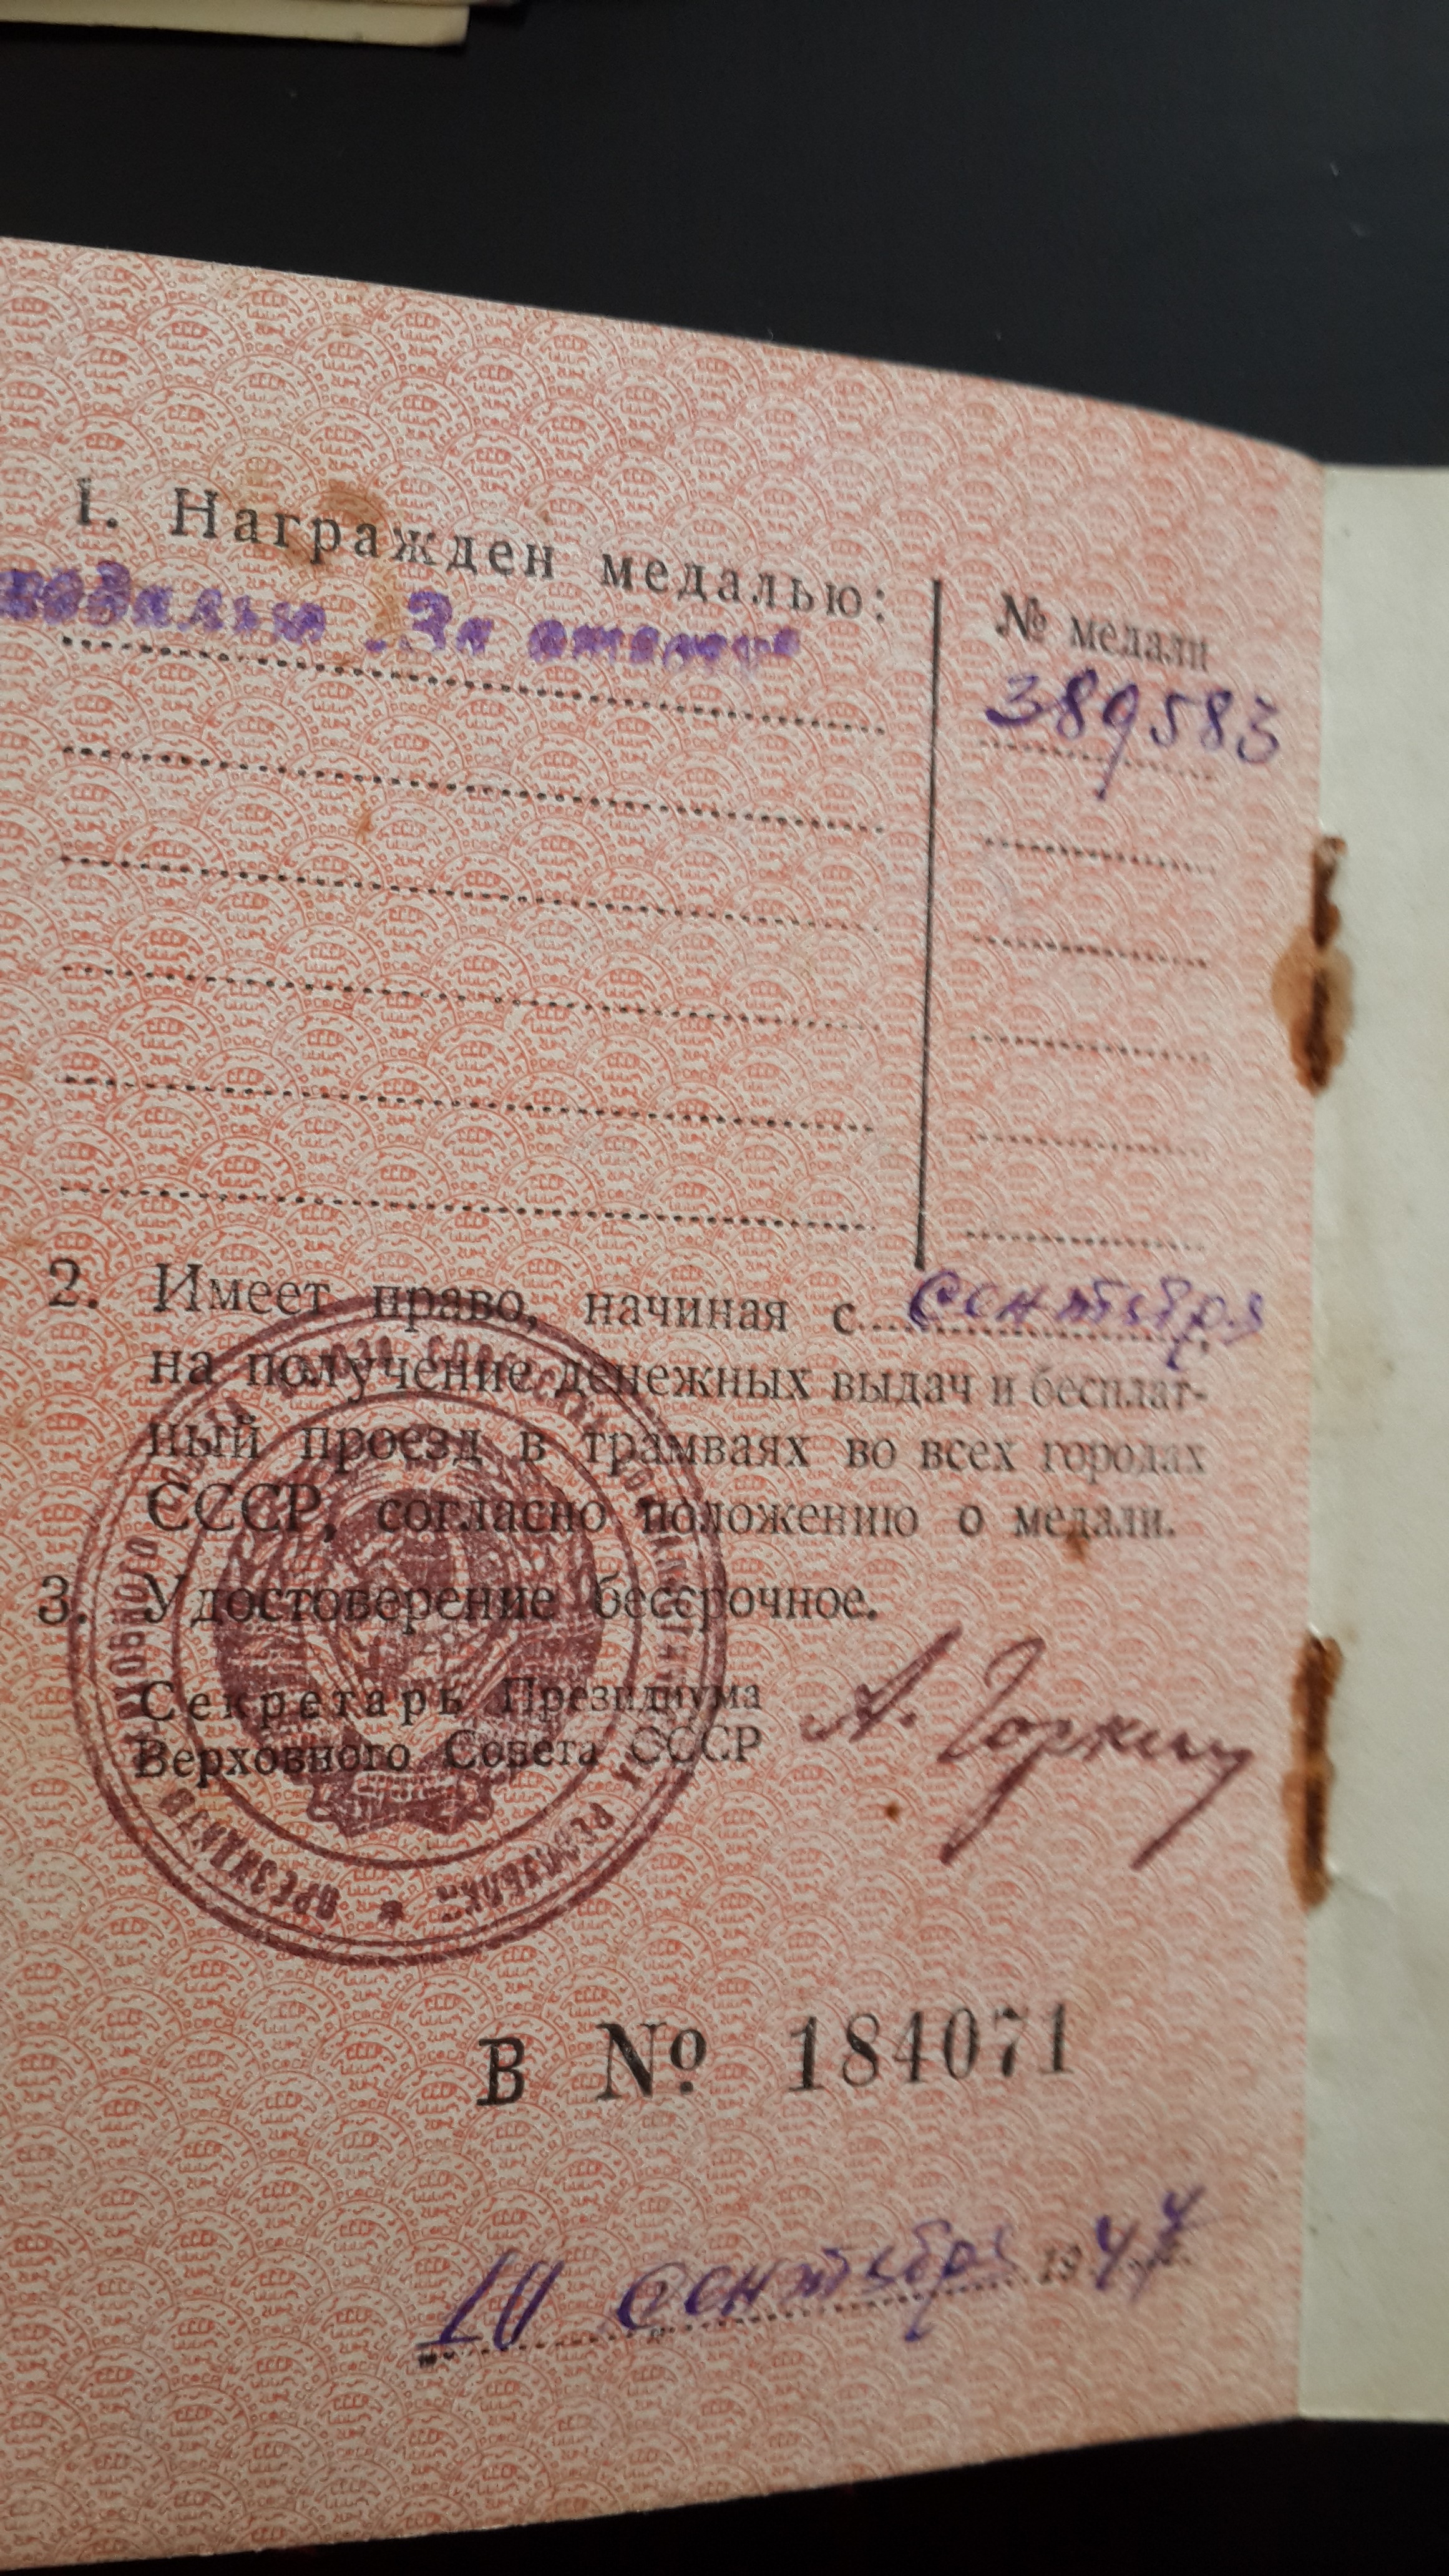 1. Награжден медалью:
медалью „За отвагу
№ медали
389583
2. Имеет право, начиная с сентября
на получение денежных выдач и бесплат-
ный проезд в трамваях во всех городах
СССР, согласно положению о медали.
3. Удостоверение бессрочное.
Секретарь Президиума
Верховного Совета СССР
А. Горкин
В № 184071
10 сентября 1944